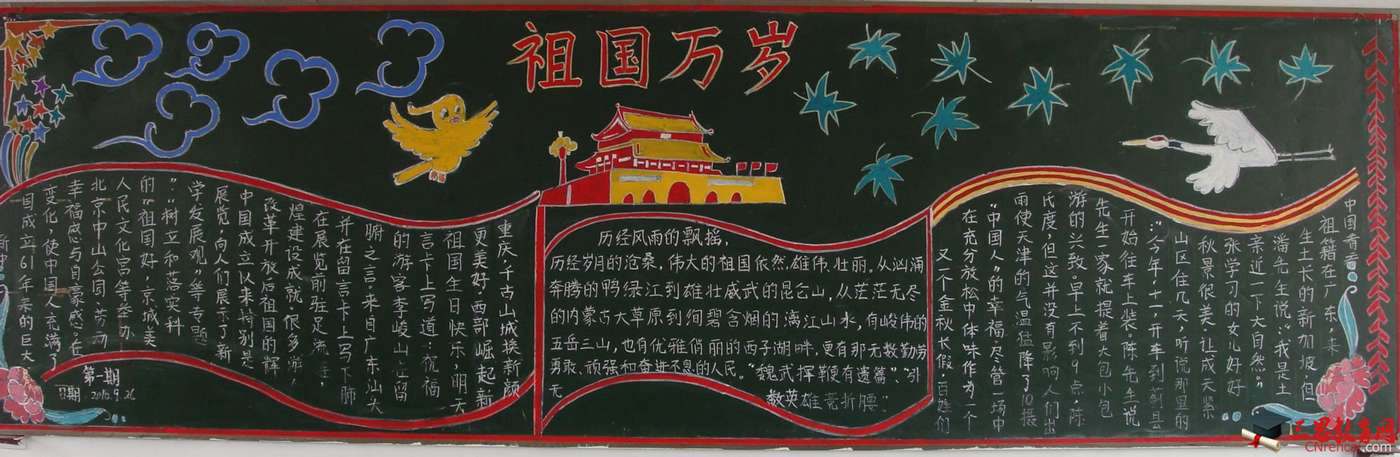 祖国万岁
重庆:千古山城换新颜
更美好,西部崛起新
祖国生日快乐,明天
言卡上写道:"祝福
的游客李峻山在留
腑之言。来自广东汕头
并在留言卡上写下肺
在展览前驻足流连,
煌建设成就,很多游
改革开放后祖国的辉
展览,向人们展示了新
中国成立以来特别是
学发展观"等专题
"树立和落实科
的"祖国好·京城美
人民文化宫等举办
北京中山公园、劳动
幸福感与自豪感。在
变化,使中国人充满了
国成立61年来的巨大
新中
第一期
日期:2010.9.26
历经风雨的飘摇,
历经岁月的沧桑,伟大的祖国依然雄伟、壮丽。从汹涌
奔腾的鸭绿江到雄壮威武的昆仑山,从茫茫无尽
的内蒙古大草原到绚碧含烟的漓江山水,有峻伟的
五岳三山,也有优雅俏丽的西子湖畔,更有那无数勤劳
勇敢、顽强和奋进不息的人民。"魏武挥鞭有遗篇"、"引
无
数英雄竞折腰"
中国青年
祖籍在广东、
生土长的新加坡
潘先生说:"我是土
亲近一下大自然。"
张学习的女儿好好
秋景很美,让成天紧
山区住几天,听说那里的
"今年'十一'开车到
开始往车上装,陈先生说
先生一家就提着大包小包
游的兴致。早上不到9点,陈
氏度,但这并没有影响人们出
雨使天津的气温猛降了10摄
"中国人"的幸福。尽管一场中
在充分放松中体味作为一个
又一个金秋长假,百姓们
CNrencai.com